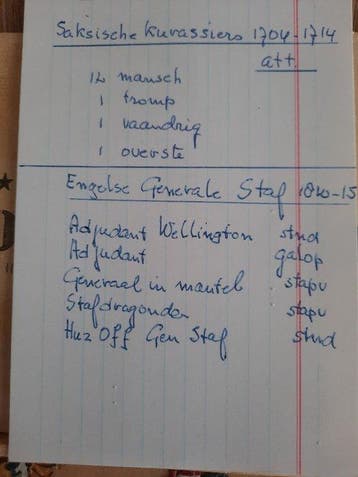 Saksische Kurassiers 1704-1714
att.
12 mansch
1 tromp
1 vaandrig
1 overste
Engelse Generale Staf 1810-15
Adjudant Wellington stnd
Adjudant galop
Generaal in mantel stapv
Stafdragonder stapv
Huz Off Gen Staf stnd